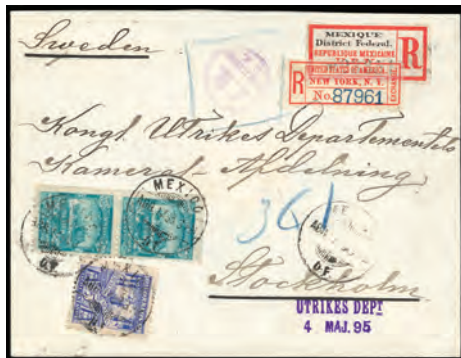 Sweden
MEXIQUE
District Federal.
REPUBLIQUE MEXICAINE
R
UNITED STATES OF AMERICA.
R NEW YORK, N. Y.
EXCHANGE
No. 87961
Kongl. Utrikes Departementets
Kamerel-Afdelning
MEXICO
D.F.
361
D.F.
Stockholm
UTRIKES DEPT
4 MAJ. 95